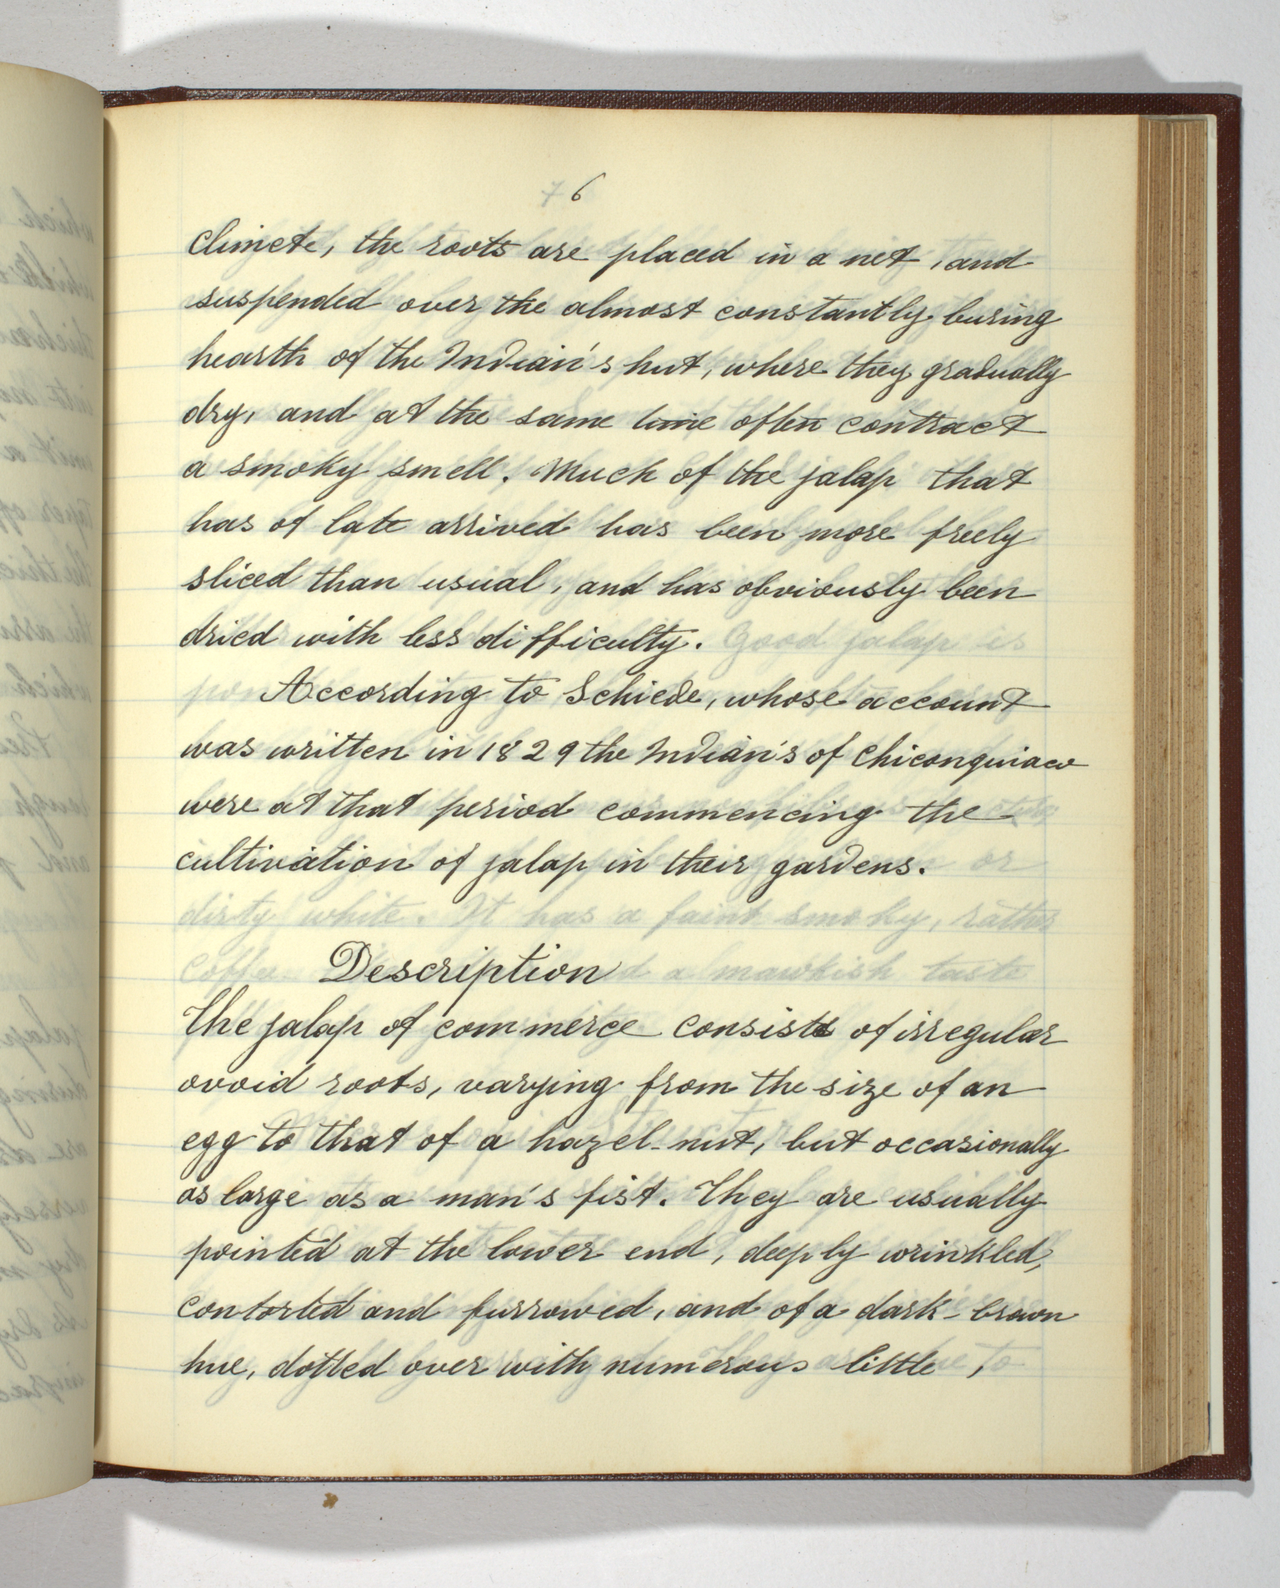 6
climate, the roots are placed in a net, and
suspended over the almost constantly buring
hearth of the Indian's hut, where they gradually
dry, and at the same time often contract
a smoky smell. Much of the jalap that
has of late arrived has been more freely
sliced than usual, and has obviously been
dried with less difficulty.
According to Schiede, whose account
was written in 1829 the Indian's of Chiconquiaco
were at that period commencing the
cultivation of jalap in their gardens.
Description
The jalap of commerce consists of irregular
ovoid roots, varying from the size of an
egg to that of a hazel-nut, but occasionally
as large as a man's fist. They are usually
pointed at the lower end, deeply wrinkled,
contorted and furrowed, and of a dark-brown
hue, dotted over with numerous little,